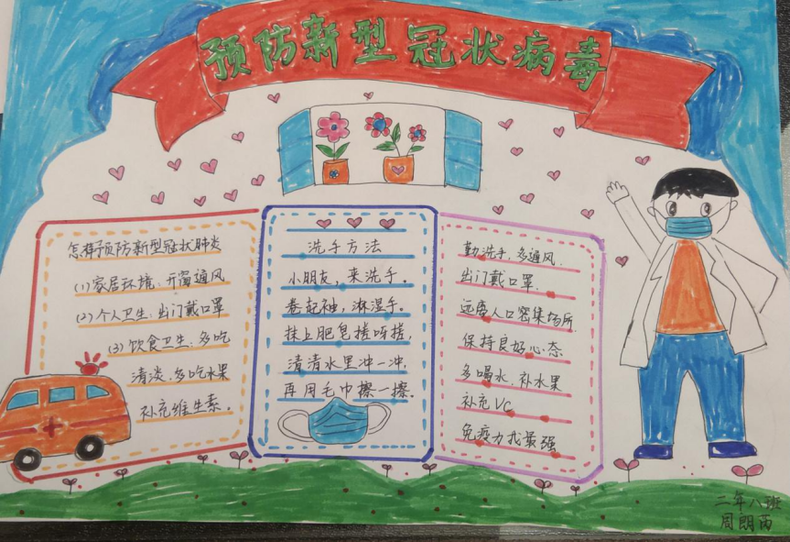 预防新型冠状病毒
怎样预防新型冠状肺炎
(1)家居环境:开窗通风
(2)个人卫生:出门戴口罩
(3)饮食卫生:多吃
清淡.多吃水果
补充维生素。
洗手方法
小朋友,来洗手。
卷起袖,淋湿手。
抹上肥皂搓呀搓,
清清水里冲一冲,
再用毛巾擦一擦。
勤洗手,多通风.
出门戴口罩.
远离人口密集场所.
保持良好心态
多喝水.补水果
补充VC
免疫力我最强
二年八班
周朗